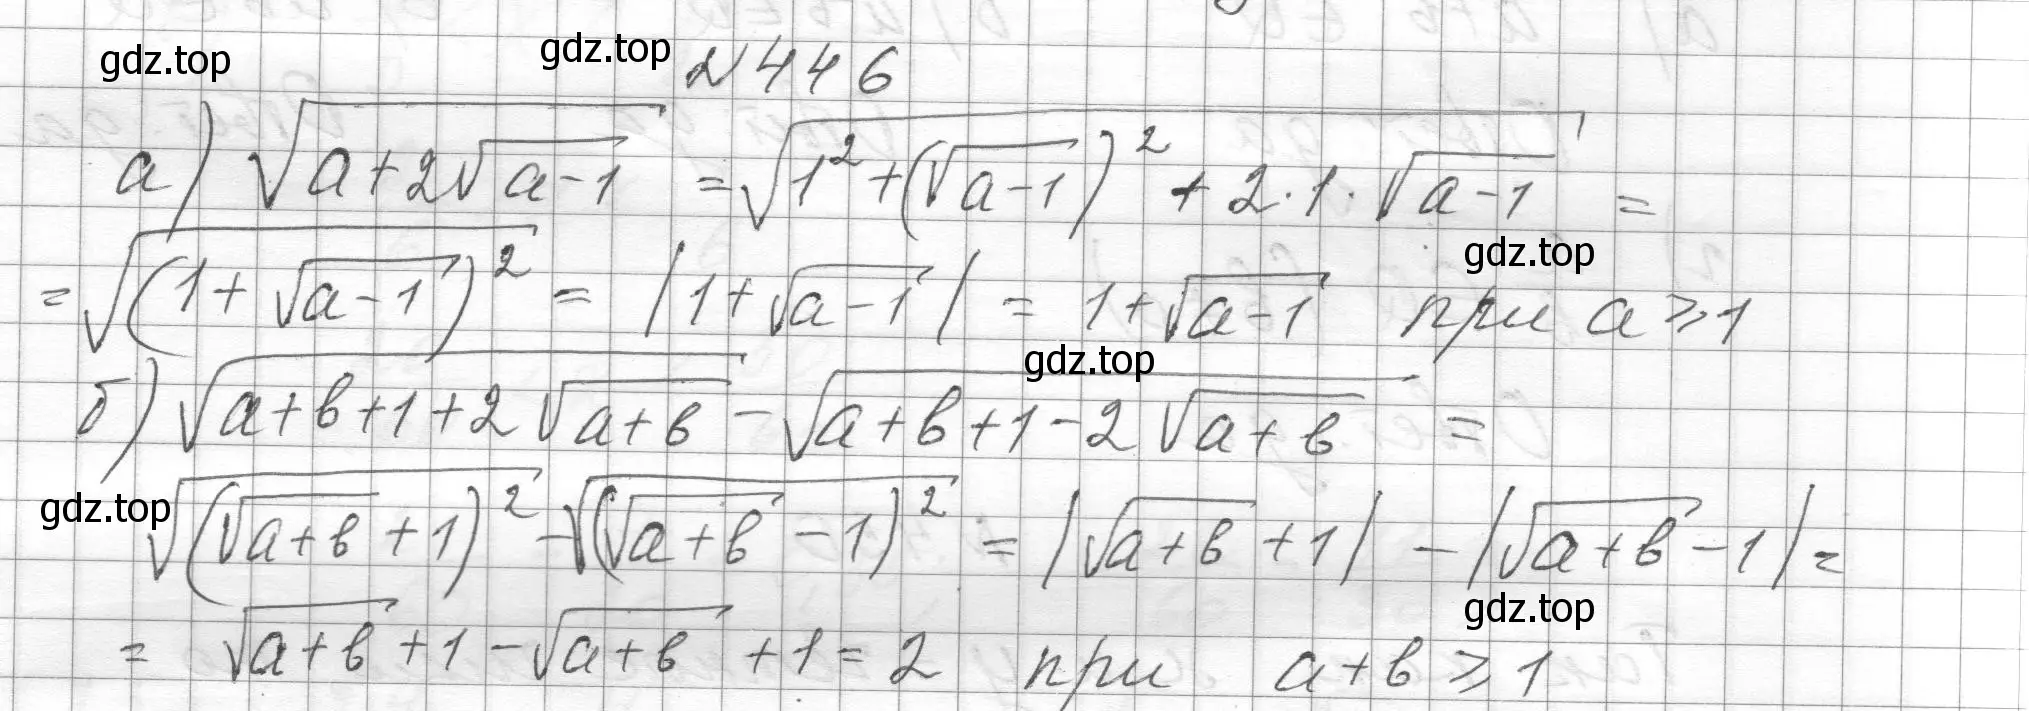 gdz.top gdz.top №446
а) √(a+2√(a-1)) = √(1²+(√(a-1))²+2·1·√(a-1)) =
gdz.top
= √((1+√(a-1))²) = |1+√(a-1)| = 1+√(a-1) при a⩾1
gdz.top
б) √(a+b+1+2√(a+b)) - √(a+b+1-2√(a+b)) =
gdz.top
√((√(a+b)+1)²) - √((√(a+b)-1)²) = |√(a+b)+1| - |√(a+b)-1| =
gdz.top
= √(a+b)+1-√(a+b)+1=2 при a+b⩾1